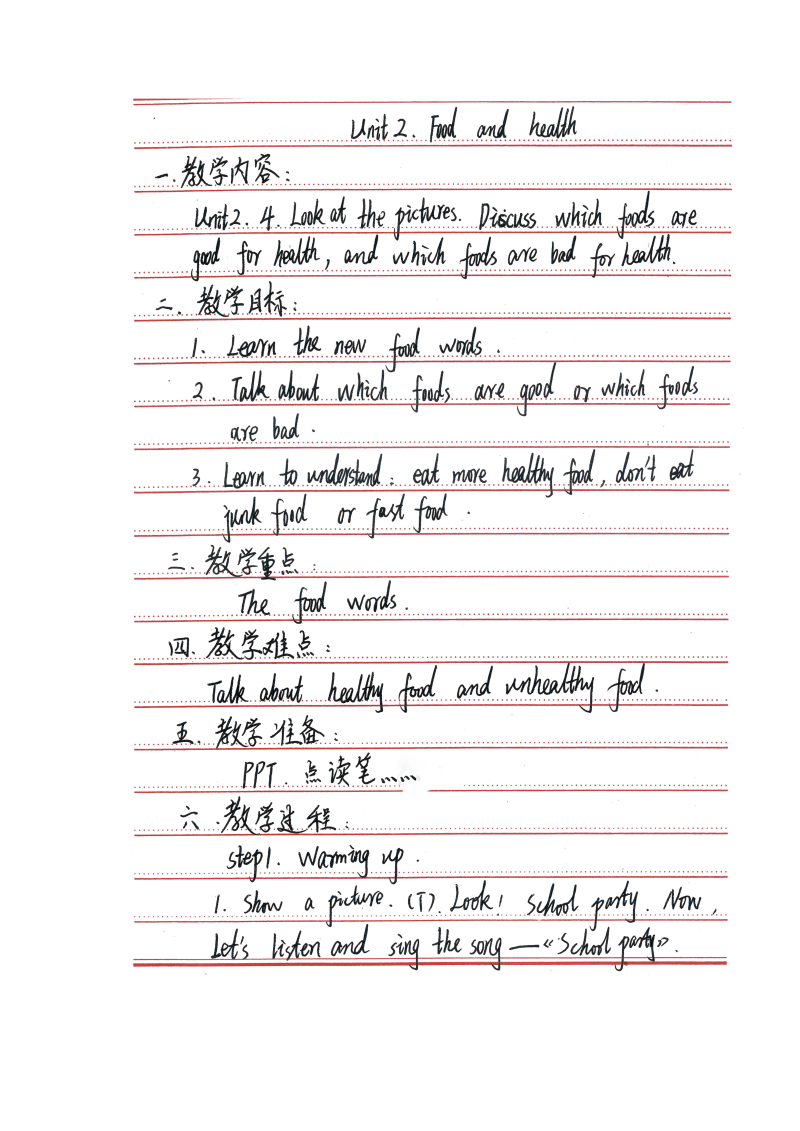 Unit 2. Food and health
一. 教学内容:
Unit 2. 4. Look at the pictures. Discuss which foods are
good for health, and which foods are bad for health.
二. 教学目标:
1. Learn the new food words.
2. Talk about which foods are good or which foods
are bad.
3. Learn to understand: eat more healthy food, don't eat
junk food or fast food.
三. 教学重点:
The food words.
四. 教学难点:
Talk about healthy food and unhealthy food.
五. 教学准备:
PPT. 点读笔……
六. 教学过程:
step1. Warming up.
1. Show a picture. (T). Look! School party. Now,
Let's listen and sing the song —《School party》.